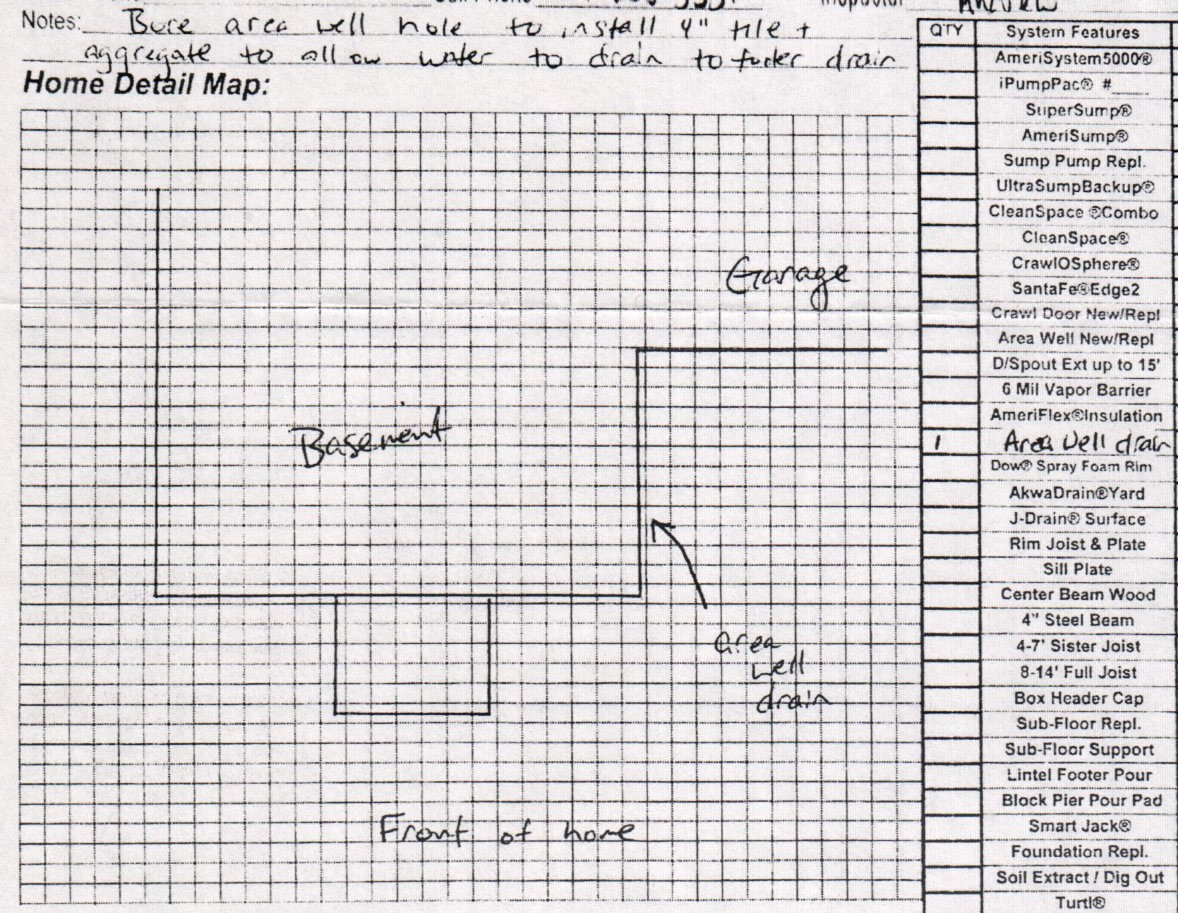 Notes: Bore area well hole to install 4" tile +
aggregate to allow water to drain to footer drain
Home Detail Map:
Garage
Basement
area
well
drain
Front of home
QTY System Features
AmeriSystem5000®
iPumpPac® #____
SuperSump®
AmeriSump®
Sump Pump Repl.
UltraSumpBackup®
CleanSpace ®Combo
CleanSpace®
CrawlOSphere®
SantaFe®Edge2
Crawl Door New/Repl
Area Well New/Repl
D/Spout Ext up to 15'
6 Mil Vapor Barrier
AmeriFlex®Insulation
1 Area Well drain
Dow® Spray Foam Rim
AkwaDrain®Yard
J-Drain® Surface
Rim Joist & Plate
Sill Plate
Center Beam Wood
4" Steel Beam
4-7' Sister Joist
8-14' Full Joist
Box Header Cap
Sub-Floor Repl.
Sub-Floor Support
Lintel Footer Pour
Block Pier Pour Pad
Smart Jack®
Foundation Repl.
Soil Extract / Dig Out
Turtl®